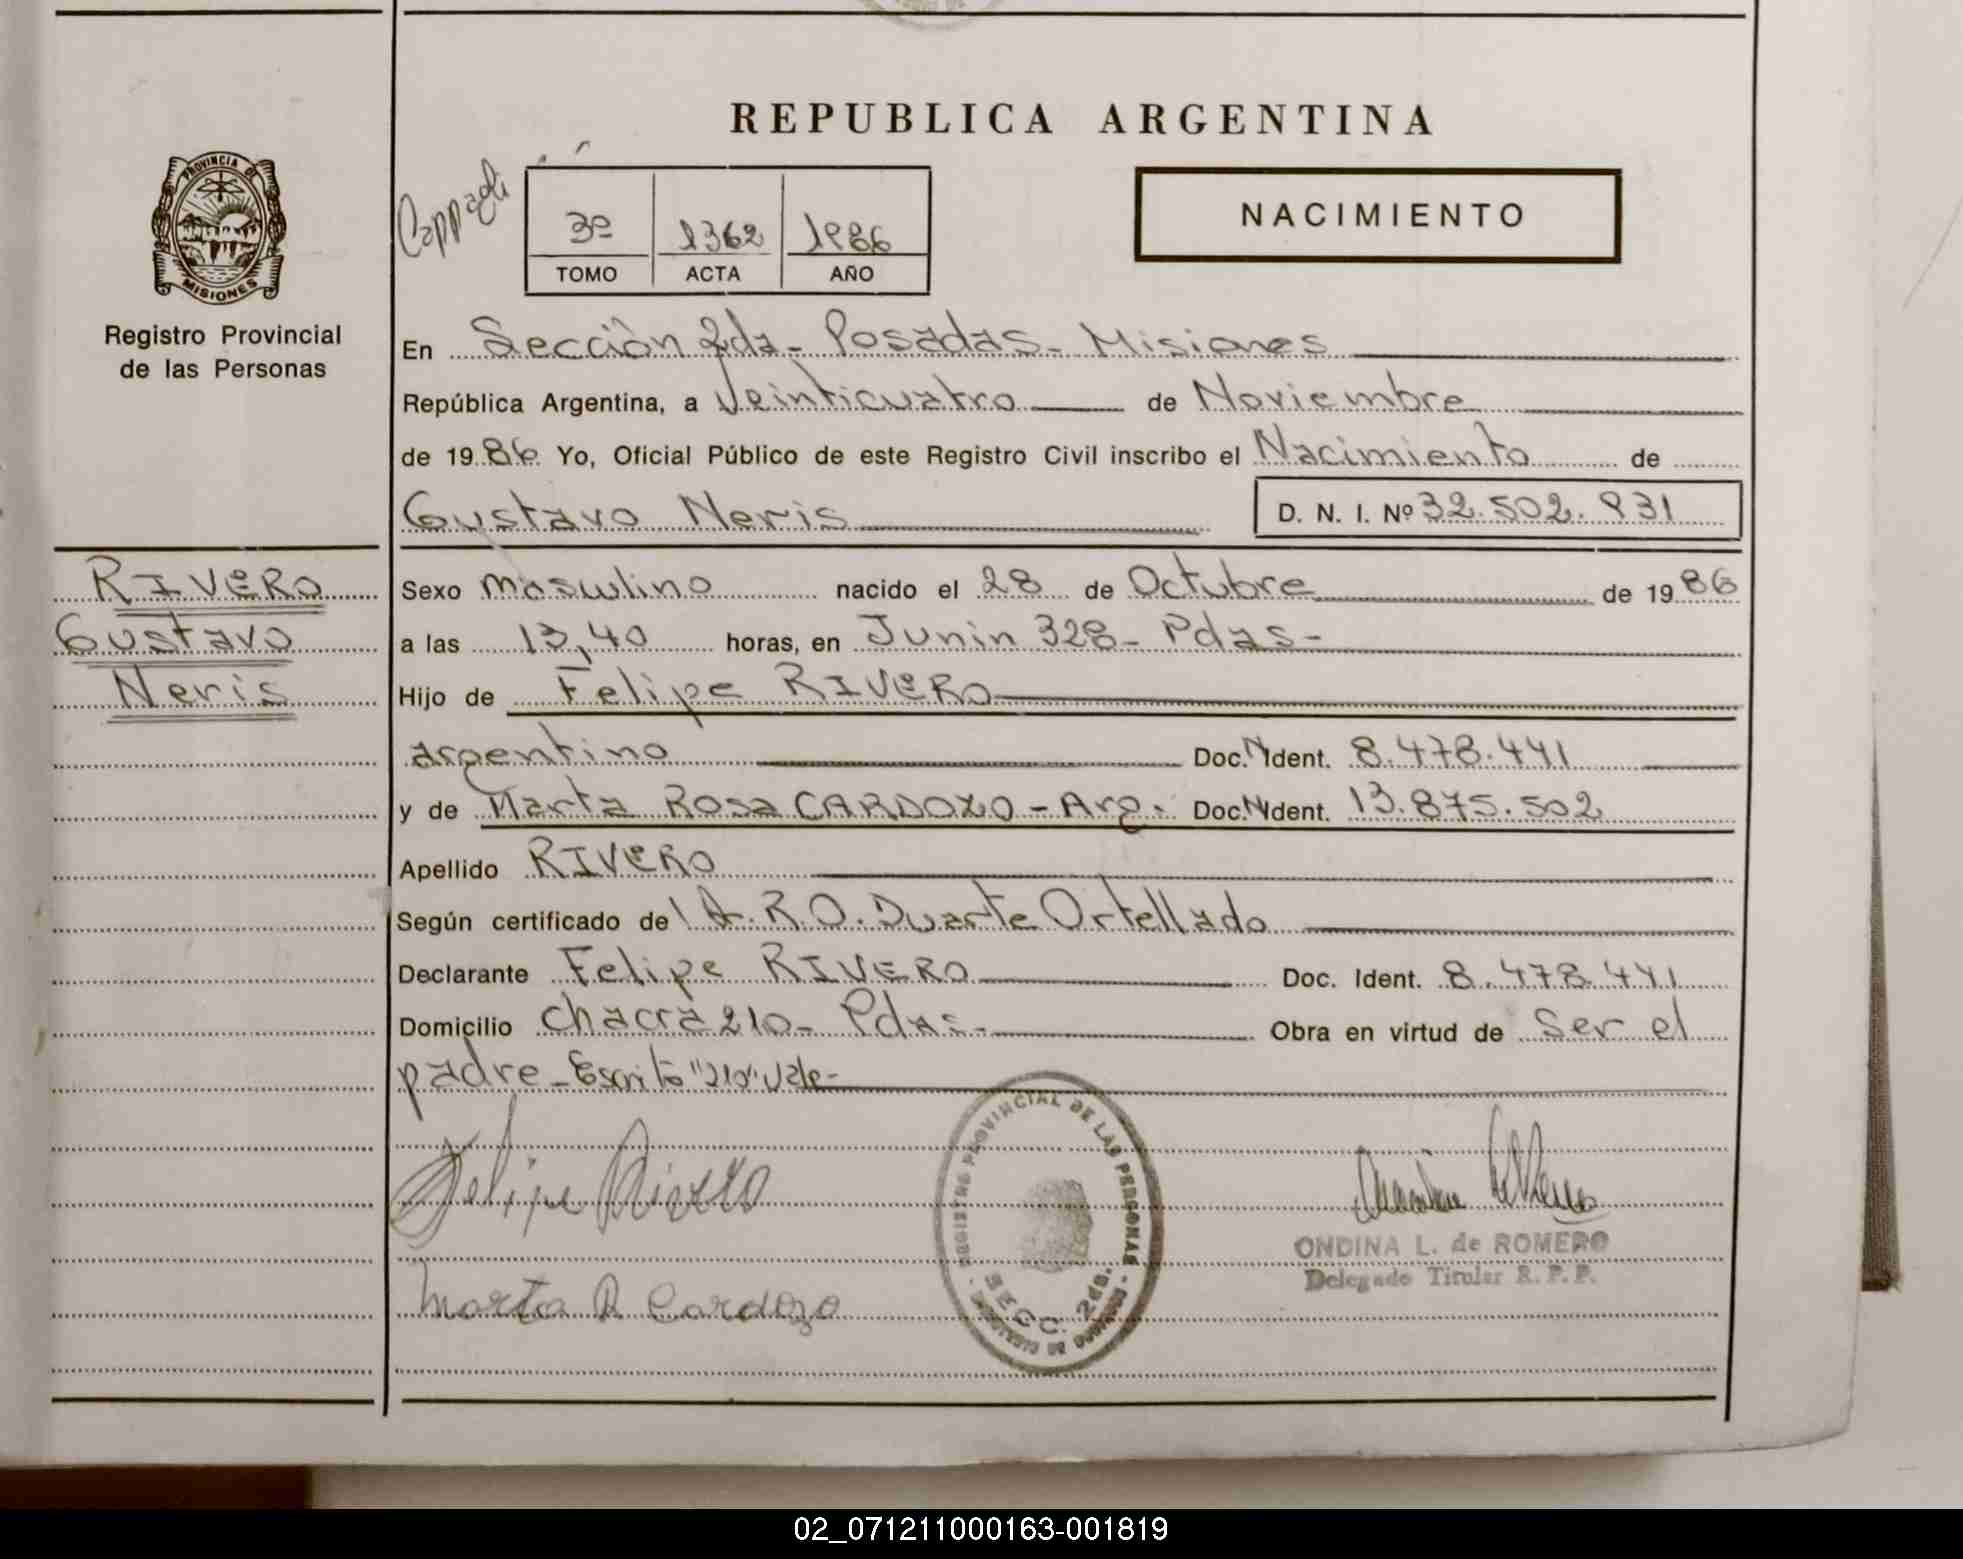 REPUBLICA ARGENTINA
PROVINCIA DE
MISIONES
Registro Provincial
de las Personas
3º 1362 1986
TOMO ACTA AÑO
NACIMIENTO
En Sección 2da - Posadas - Misiones
República Argentina, a Veinticuatro de Noviembre
de 1986 Yo, Oficial Público de este Registro Civil inscribo el Nacimiento de
Gustavo Neris D. N. I. Nº 32.502.831
RIVERO
Gustavo
Neris
Sexo Masculino nacido el 28 de Octubre de 1986
a las 13,40 horas, en Junin 328 - Pdas -
Hijo de Felipe RIVERO
argentino Doc. N Ident. 8.478.441
y de Marta Rosa CARDOZO - Arg. Doc. N Ident. 13.875.502
Apellido RIVERO
Según certificado de R.O. Duarte Ortellado
Declarante Felipe RIVERO Doc. Ident. 8.478.441
Domicilio Chacra 210 - Pdas - Obra en virtud de Ser el
padre - Escrito "210" Vale -
Felipe Rivero
Marta R Cardozo
REGISTRO PROVINCIAL DE LAS PERSONAS
SECC. 2da.
ONDINA L. de ROMERO
Delegado Titular R. P. P.
02_071211000163-001819